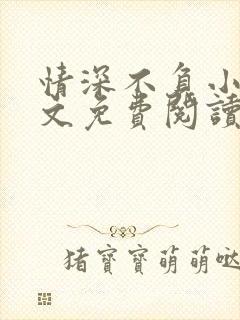 情深不負小
文免費閱讀
猪寶寶萌萌哒